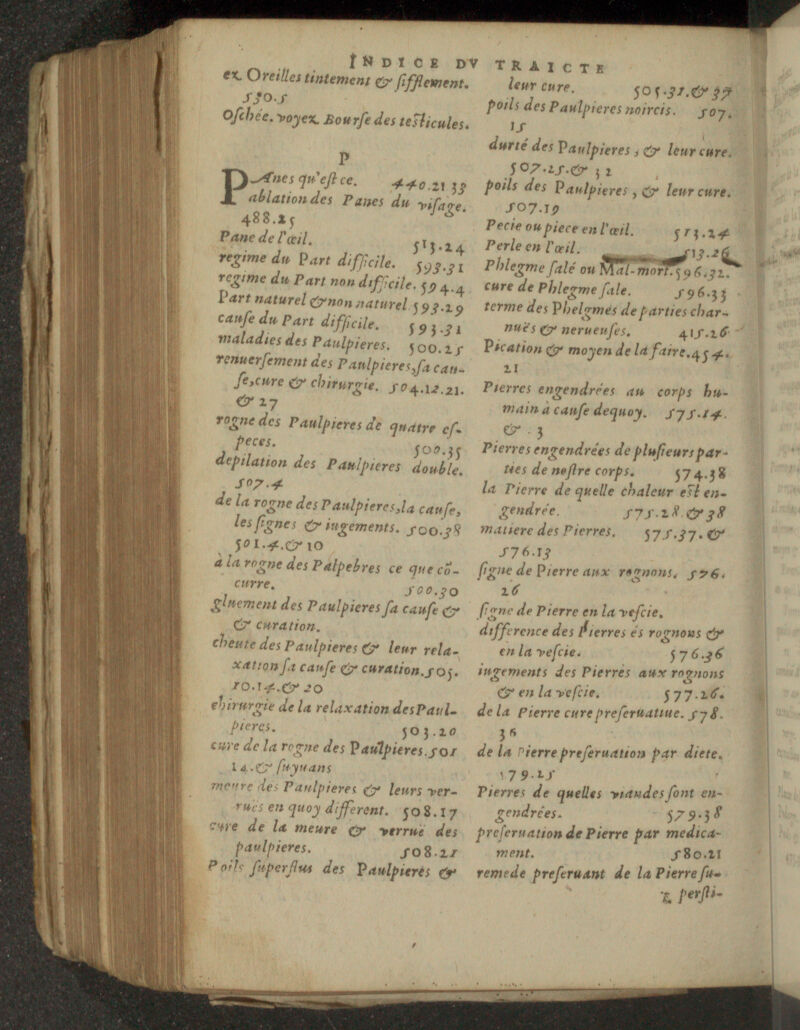 INDICE DV TRAICTE
ez Oreilles tintement & sifflement.
550.5
Oschée. voyez Bourse des testicules.
P
PAnes qu'est ce. 440.21 33
ablation des Panes du visage.
488.25
Pane de l'œil. 513.24
regime du Part difficile. 593.31
regime du Part non difficile. 594.4
Part naturel & non naturel 593.29
cause du Part difficile. 593.31
maladies des Paulpieres. 500.25
renuersement des Paulpieres, sa cau-
se, cure & chirurgie. 504.12.21.
& 27
rogne des Paulpieres de quatre es-
peces. 500.35
depilation des Paulpieres double.
507.4
de la rogne des Paulpieres, la cause,
les signes & iugements. 500.38
501.4.& 10
a la rogne des Palpebres ce que cō-
curre. 500.30
gluement des Paulpieres sa cause &
& curation.
cheute des Paulpieres & leur rela-
xation sa cause & curation. 505.
10.14.& 20
chirurgie de la relaxation des Paul-
pieres. 503.20
cure de la rogne des Paulpieres. 501
14.& suyuans
meure des Paulpieres & leurs ver-
rues en quoy different. 508.17
cure de la meure & verrue des
paulpieres. 508.21
Poils superflus des Paulpieres &
leur cure. 505.31.& 37
poils des Paulpieres noircis. 507.
15
durté des Paulpieres, & leur cure.
507.25.& 32
poils des Paulpieres, & leur cure.
507.19
Pecie ou piece en l'œil. 513.24
Perle en l'œil. 513.26
Phlegme salé ou Mal-mort. 596.32.
cure de Phlegme sale. 596.33
terme des Phelgmes de parties char-
nues & nerueuses. 415.26
Pication & moyen de la faire. 454.
21
Pierres engendrées au corps hu-
main à cause dequoy. 575.14.
& 3
Pierres engendrées de plusieurs par-
ties de nostre corps. 574.38
la Pierre de quelle chaleur est en-
gendrée. 575.28.& 38
matiere des Pierres. 575.37.&
576.13
signe de Pierre aux rognons. 576.
26
signe de Pierre en la vescie.
difference des Pierres és rognons &
en la vescie. 576.36
iugements des Pierres aux rognons
& en la vescie. 577.26.
de la Pierre cure preseruatiue. 578.
36
de la Pierre preseruation par diete.
579.25
Pierres de quelles viandes sont en-
gendrées. 579.38
preseruation de Pierre par medica-
ment. 580.21
remede preseruant de la Pierre su-
perfli-